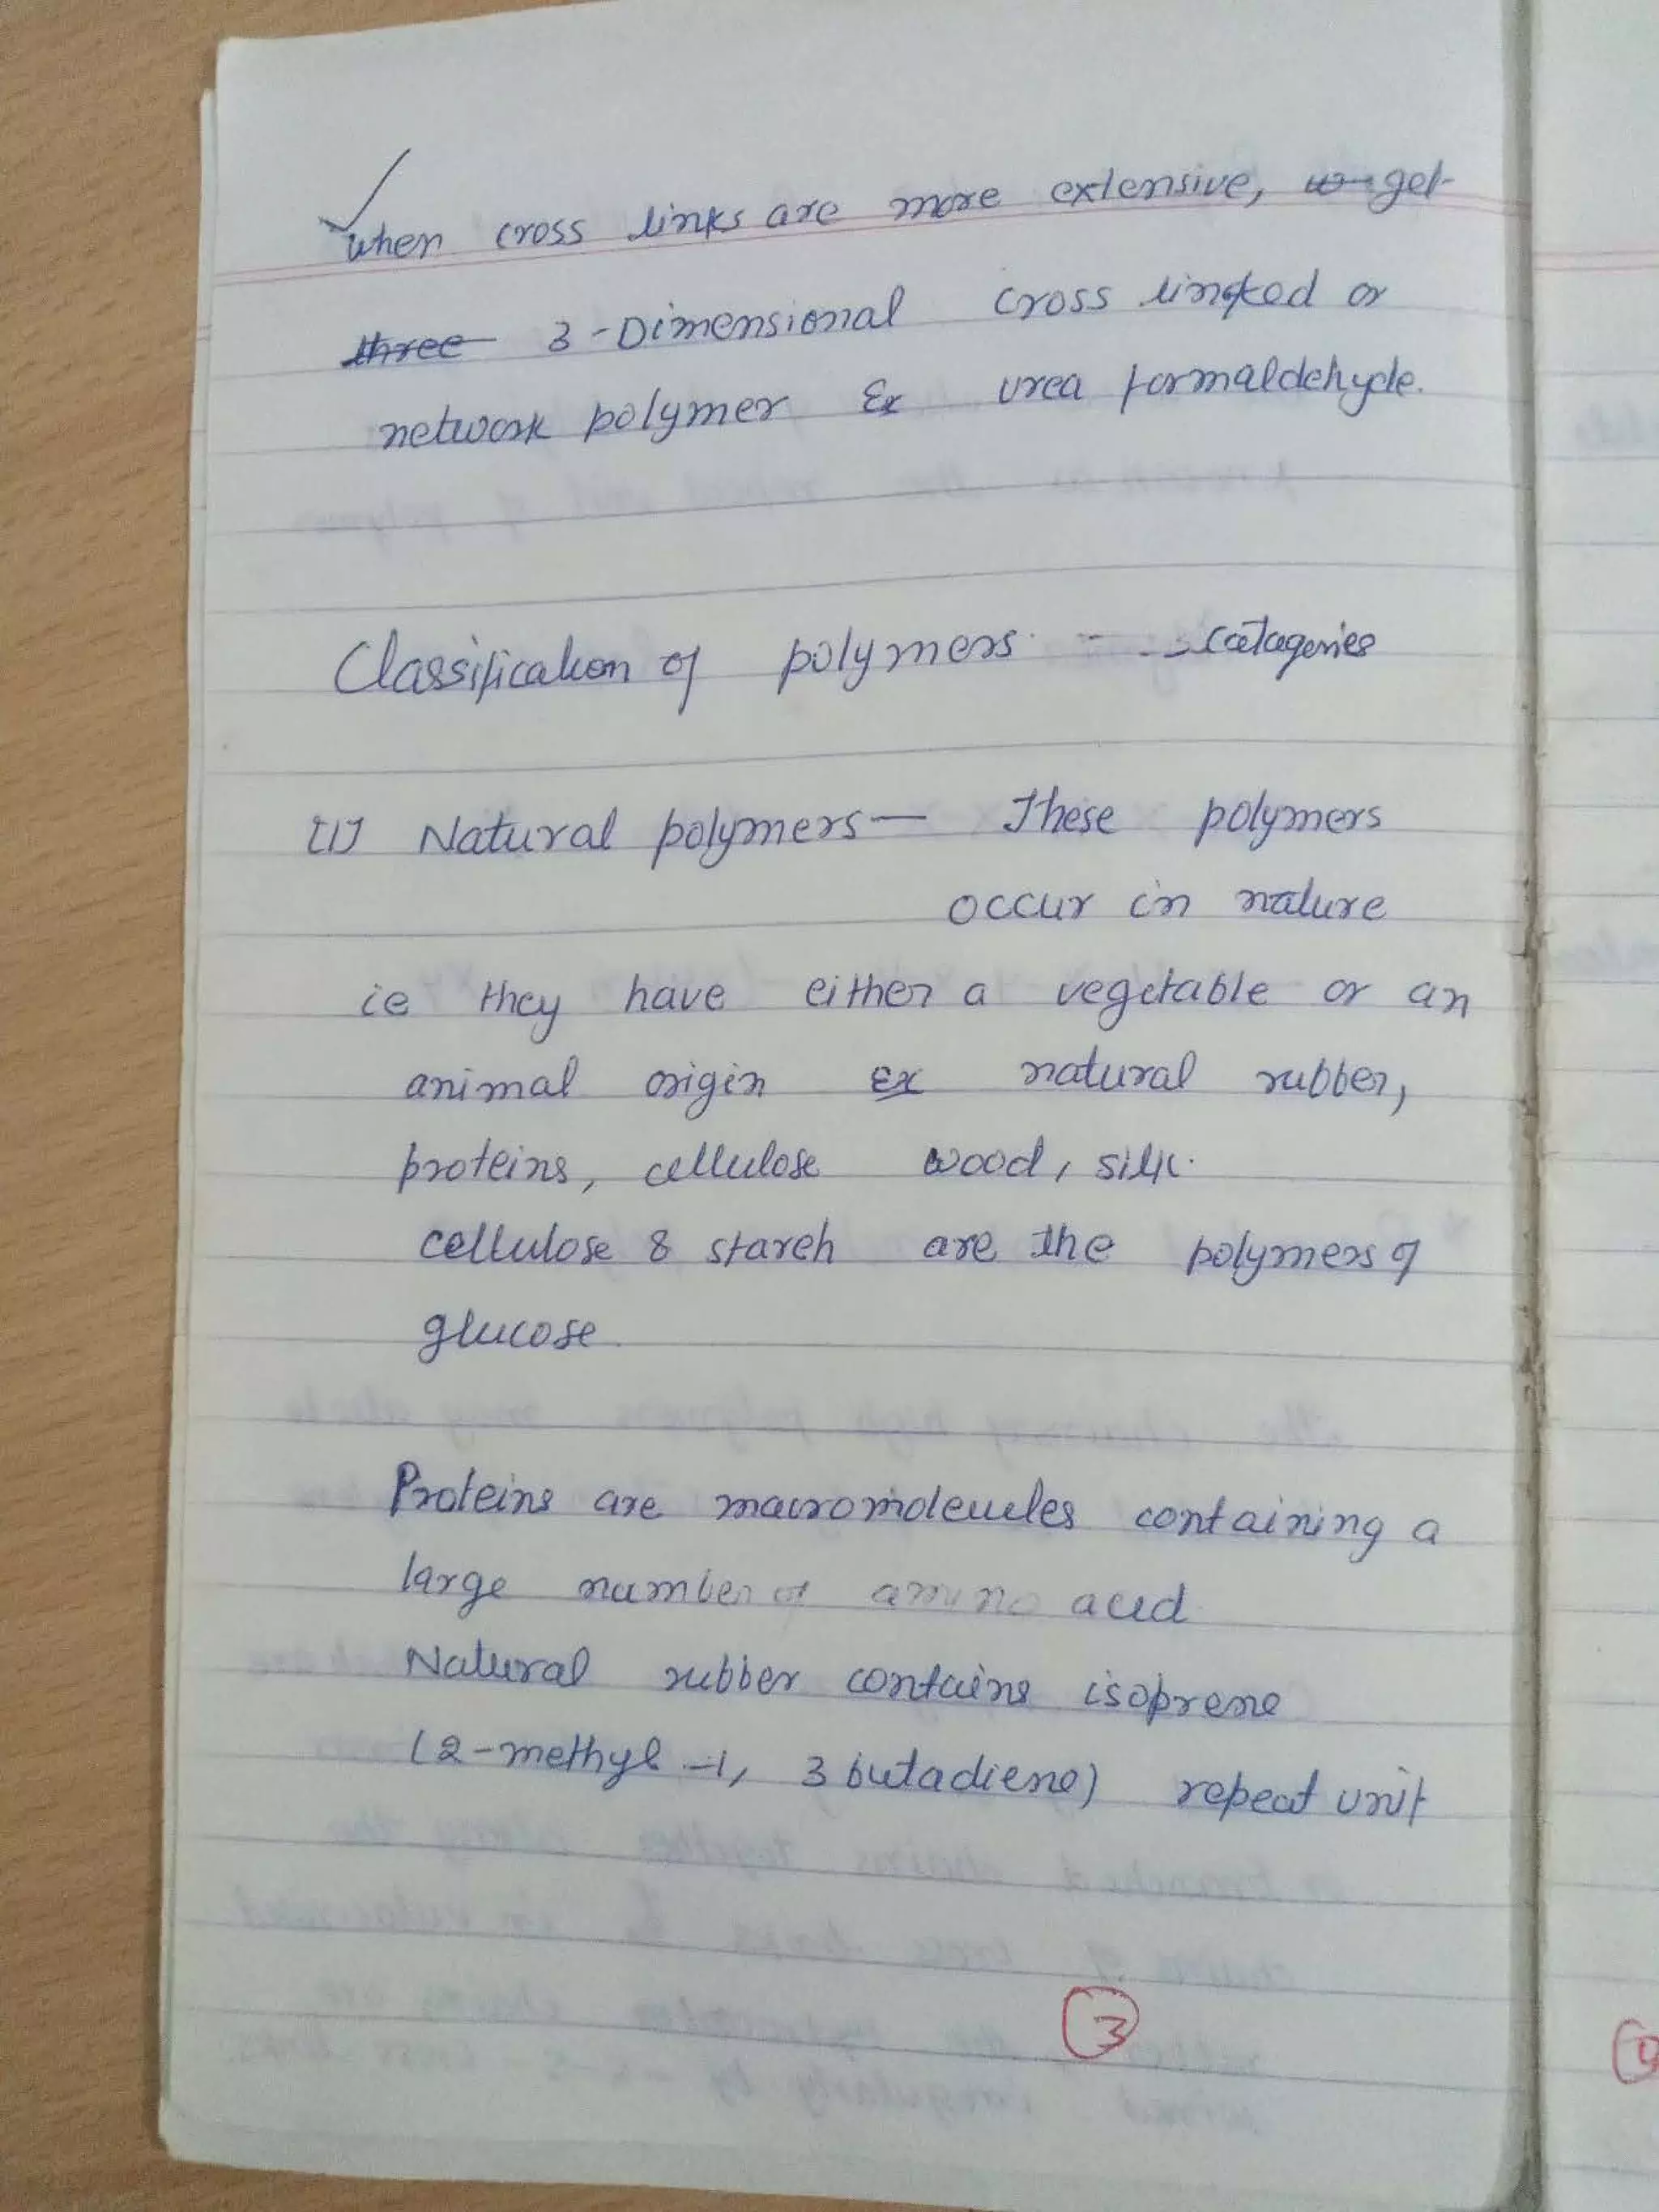 when cross links are more extensive, we get
three 3-Dimensional cross linked or
network polymer Ex urea formaldehyde.
Classification of polymers - catageries
[1] Natural polymers— These polymers
occur in nature
ie they have either a vegetable or an
animal origin Ex natural rubber,
proteins, cellulose wood, silk.
cellulose & starch are the polymers of
glucose
Proteins are macromolecules containing a
large number of amino acid
Natural rubber contains isoprene
(2-methyl -1, 3 butadiene) repeat unit
3